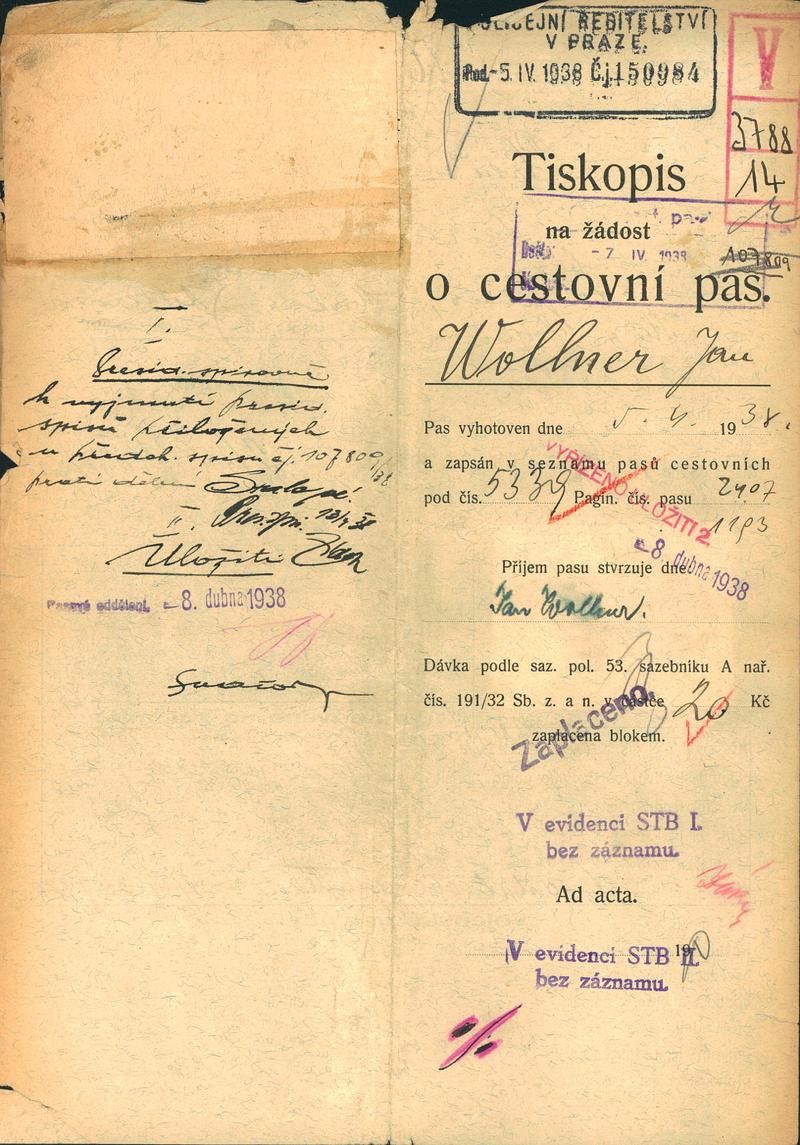 I.
k vyjmutí presid.
spisů přiložených
u předch. spisu čj. 107809/38
II.
Uložiti
Pasové oddělení, -8. dubna 1938
POLICEJNÍ ŘEDITELSTVÍ
V PRAZE.
Pod. -5. IV. 1938 Čj. 150984
V
3788
14
Tiskopis
na žádost
-7. IV. 1938
107809
o cestovní pas.
Wollner Jan
Pas vyhotoven dne 5. 4. 1938.
a zapsán v seznamu pasů cestovních
pod čís. 5339 Pagin. čís. pasu 2407
1193
VYŘÍZENO ULOŽITI 2.
-8. dubna 1938
Příjem pasu stvrzuje dne:
Jan Wollner.
Dávka podle saz. pol. 53. sazebníku A nař.
čís. 191/32 Sb. z. a n. v částce 20 Kč
Zaplaceno.
zaplacena blokem.
V evidenci STB I.
bez záznamu.
Ad acta.
19
V evidenci STB II.
bez záznamu.